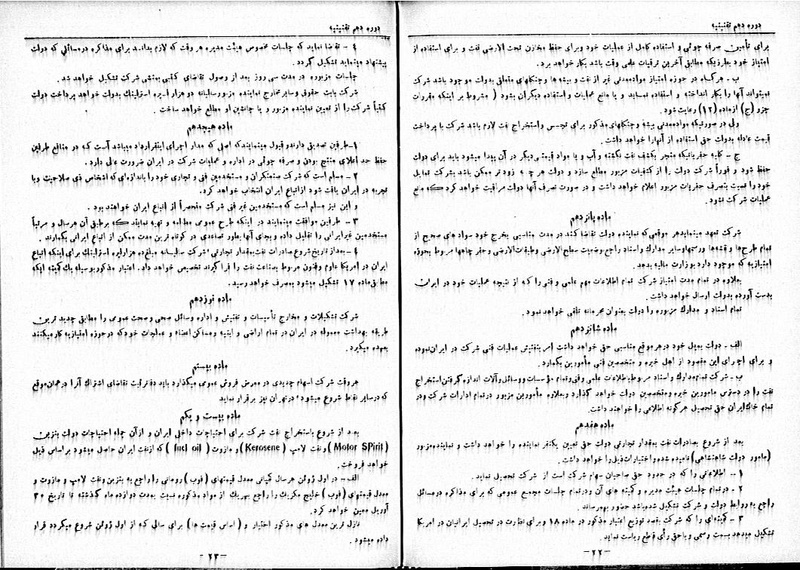 دوره دهم تقنینیه
برای تأمین صرفه جوئی و استفاده کامل از عملیات خود و برای حفظ مخازن تحت الارضی نفت و برای استفاده از
امتیاز خود بطریقه مطابق آخرین ترقیات علمی وقت باشد بکار خواهد برد.
ب - هرگاه در حوزه امتیاز مواد معدنی غیر از نفت و بیشه ها و جنگلهای متعلق بدولت موجود باشد شرکت
نمیتواند آنها را بکار انداخته و استفاده نماید و یا مانع عملیات و استفاده دیگران بشود ( مشروط بر اینکه مقررات
جزو (ج) از ماده (۱۲) رعایت شود.
ولی در صورتیکه مواد معدنی بیشه و جنگلهای مذکور برای تجسس و استخراج نفت لازم باشد شرکت با پرداخت
قیمت عادله بدولت حق استفاده از آنها را خواهد داشت.
ج - کلیه حفریاتیکه منجر بکشف نفت نگشته و آب و یا مواد قیمتی دیگر در آن پیدا میشود باید برای دولت
حفظ شود و فوراً شرکت دولت را از کشفیات مزبور مطلع سازد و دولت هر چه زودتر ممکن باشد بشرکت تمایل
خود را نسبت بتصرف حفریات مزبور اعلام خواهد داشت و در صورت تصرف آنها دولت مراقبت خواهد کرد که مانع
عملیات شرکت نشود.
ماده پانزدهم
شرکت تعهد مینماید هر موقعی که نماینده دولت تقاضا کند در مدت مناسبی بخرج خود سوادهای صحیح از
تمام طرح ها و نقشه ها و رسمها و سایر مدارک و اسناد راجع بوضعیت سطح الارضی و طبقات الارضی و حفر چاهها مربوط بحوزه
امتیازیه که موجود دارد بوزارت مالیه بدهد.
بعلاوه در تمام مدت امتیاز شرکت تمام اطلاعات مهم علمی و فنی را که از نتیجه عملیات خود در ایران
بدست آورده بدولت ارسال خواهد داشت.
تمام اسناد و مدارک مزبوره را دولت بعنوان محرمانه تلقی خواهد نمود.
ماده شانزدهم
الف - دولت بمیل خود در هر موقع مناسبی حق خواهد داشت امر بتفتیش عملیات فنی شرکت در ایران نموده
و برای اجرای این مقصود از اهل خبره و متخصصین فنی مأمورین بگمارد.
ب - شرکت تمام مدارک و اسناد مربوط باطلاعات علمی و فنی و تمام مؤسسات و وسائل و آلات اندازه گرفتن استخراج
نفت را در دسترس مأمورین خبره و متخصصین دولت خواهد گذارد و بعلاوه مأمورین مزبور در تمام ادارات شرکت و در
تمام خاک ایران حق تحصیل هر گونه اطلاعی را خواهند داشت.
ماده هفدهم
بعد از شروع بصادرات نفت بمقدار تجارتی دولت حق تعیین یکنفر نماینده را خواهد داشت و نماینده مزبور
(مأمور دولت شاهنشاهی) نامیده شده و اختیارات ذیل را خواهد داشت.
۱ - اطلاعاتی را که در حدود حق صاحبان سهام شرکت است از شرکت تحصیل نماید.
۲ - در تمام جلسات هیئت مدیره و کمیته های آن و در تمام جلسات مجمع عمومی که برای مذاکره در مسائل
راجع به روابط دولت و شرکت تشکیل شده باشد حضور بهم رساند.
۳ - کمیته‌ای را که شرکت بقصد توزیع اعتبار مذکور در ماده ۱۸ و برای نظارت در تحصیل ایرانیان در امریکا
تشکیل میدهد بسمت رسمی و با حق رأی قاطع ریاست نماید.
-۲۲-
دوره دهم تقنینیه
۴ - تقاضا نماید که جلسات مخصوص هیئت مدیره هر وقت که لازم بداند برای مذاکره در مسائلی که دولت
پیشنهاد مینماید تشکیل گردد.
جلسات مزبوره در مدت سی روز بعد از وصول تقاضای کتبی بمنشی شرکت تشکیل خواهد شد.
شرکت بابت حقوق و سایر مخارج نماینده مزبور سالیانه دو هزار لیره استرلینگ بدولت خواهد پرداخت دولت
کتباً شرکت را از تعیین نماینده مزبور و یا جانشین او مطلع خواهد ساخت.
ماده هیجدهم
۱ - طرفین تصدیق دارند و قبول مینمایند که اصلی که مدار اجرای این قرارداد میباشد آنست که در منافع طرفین
حفظ حد اعلای منتج بودن و صرفه جوئی در اداره و عملیات شرکت در ایران ضرورت عالی دارد.
۲ - مسلم است که شرکت صنعتگران و مستخدمین فنی و تجاری خود را باندازه‌ای که اشخاص ذی صلاحیت و با
تجربه در ایران یافت شود از اتباع ایران انتخاب خواهد کرد.
و این نیز مسلم است که مستخدمین غیر فنی شرکت منحصراً از اتباع ایران خواهند بود.
۳ - طرفین موافقت مینمایند در اینکه طرح عمومی مطالعه و تهیه نمایند که بر طبق آن هر سال و مرتباً
مستخدمین غیر ایرانی را تقلیل داده و بجای آنها بطور تصاعدی در کوتاه ترین مدت ممکن از اتباع ایرانی بگمارند.
۴ - بعد از تاریخ شروع صادرات نفت بمقدار تجارتی شرکت سالیانه مبلغ ده هزار لیره استرلینگ برای اینکه اتباع
ایران در امریکا علوم و فنون مربوط بصناعت نفت را فرا گیرند تخصیص خواهد داد. اعتبار مذکور بوسیله یک کمیته اینکه
مطابق ماده ۱۷ تشکیل میشود بمصرف خواهد رسید.
ماده نوزدهم
شرکت تشکیلات و مخارج تأسیسات و تفتیش و اداره وسائل صحی و صحت عمومی را مطابق جدید ترین
طریقه بهداشت معموله در ایران در تمام اراضی و ابنیه و مساکن اعضاء و عملجات خود که در حوزه امتیازیه کار میکنند
بعهده میگیرد.
ماده بیستم
هر وقت شرکت اسهام جدیدی در معرض فروش عمومی میگذارد باید دفاتر ثبت تقاضای اشتراک آنرا در همان موقع
که در سایر نقاط شروع میشود در تهران نیز برقرار نماید
ماده بیست و یکم
بعد از شروع باستخراج نفت شرکت برای احتیاجات داخلی ایران و از آن جمله احتیاجات دولت بنزین
(Motor SPirit) و نفت لامپ (Kerosene) و مازوت (Fuel oil) که از نفت ایران حاصل میشود بر اساس ذیل
خواهد فروخت.
الف - در اول ژوئن هر سال کمپانی معدل قیمتهای (فوب) رومانی را راجع به بنزین و نفت لامپ و مازوت و
معدل قیمتهای (فوب) خلیج مکزیک را راجع بهر یک از مواد مذکوره نسبت بمدت دوازده ماه گذشته تا تاریخ ۳۰
آوریل معین خواهد کرد.
نازل ترین معدل های مذکور اختیار و (اساس قیمت ها) برای سالی که از اول ژوئن شروع میگردد قرار
داده میشود.
-۲۳-